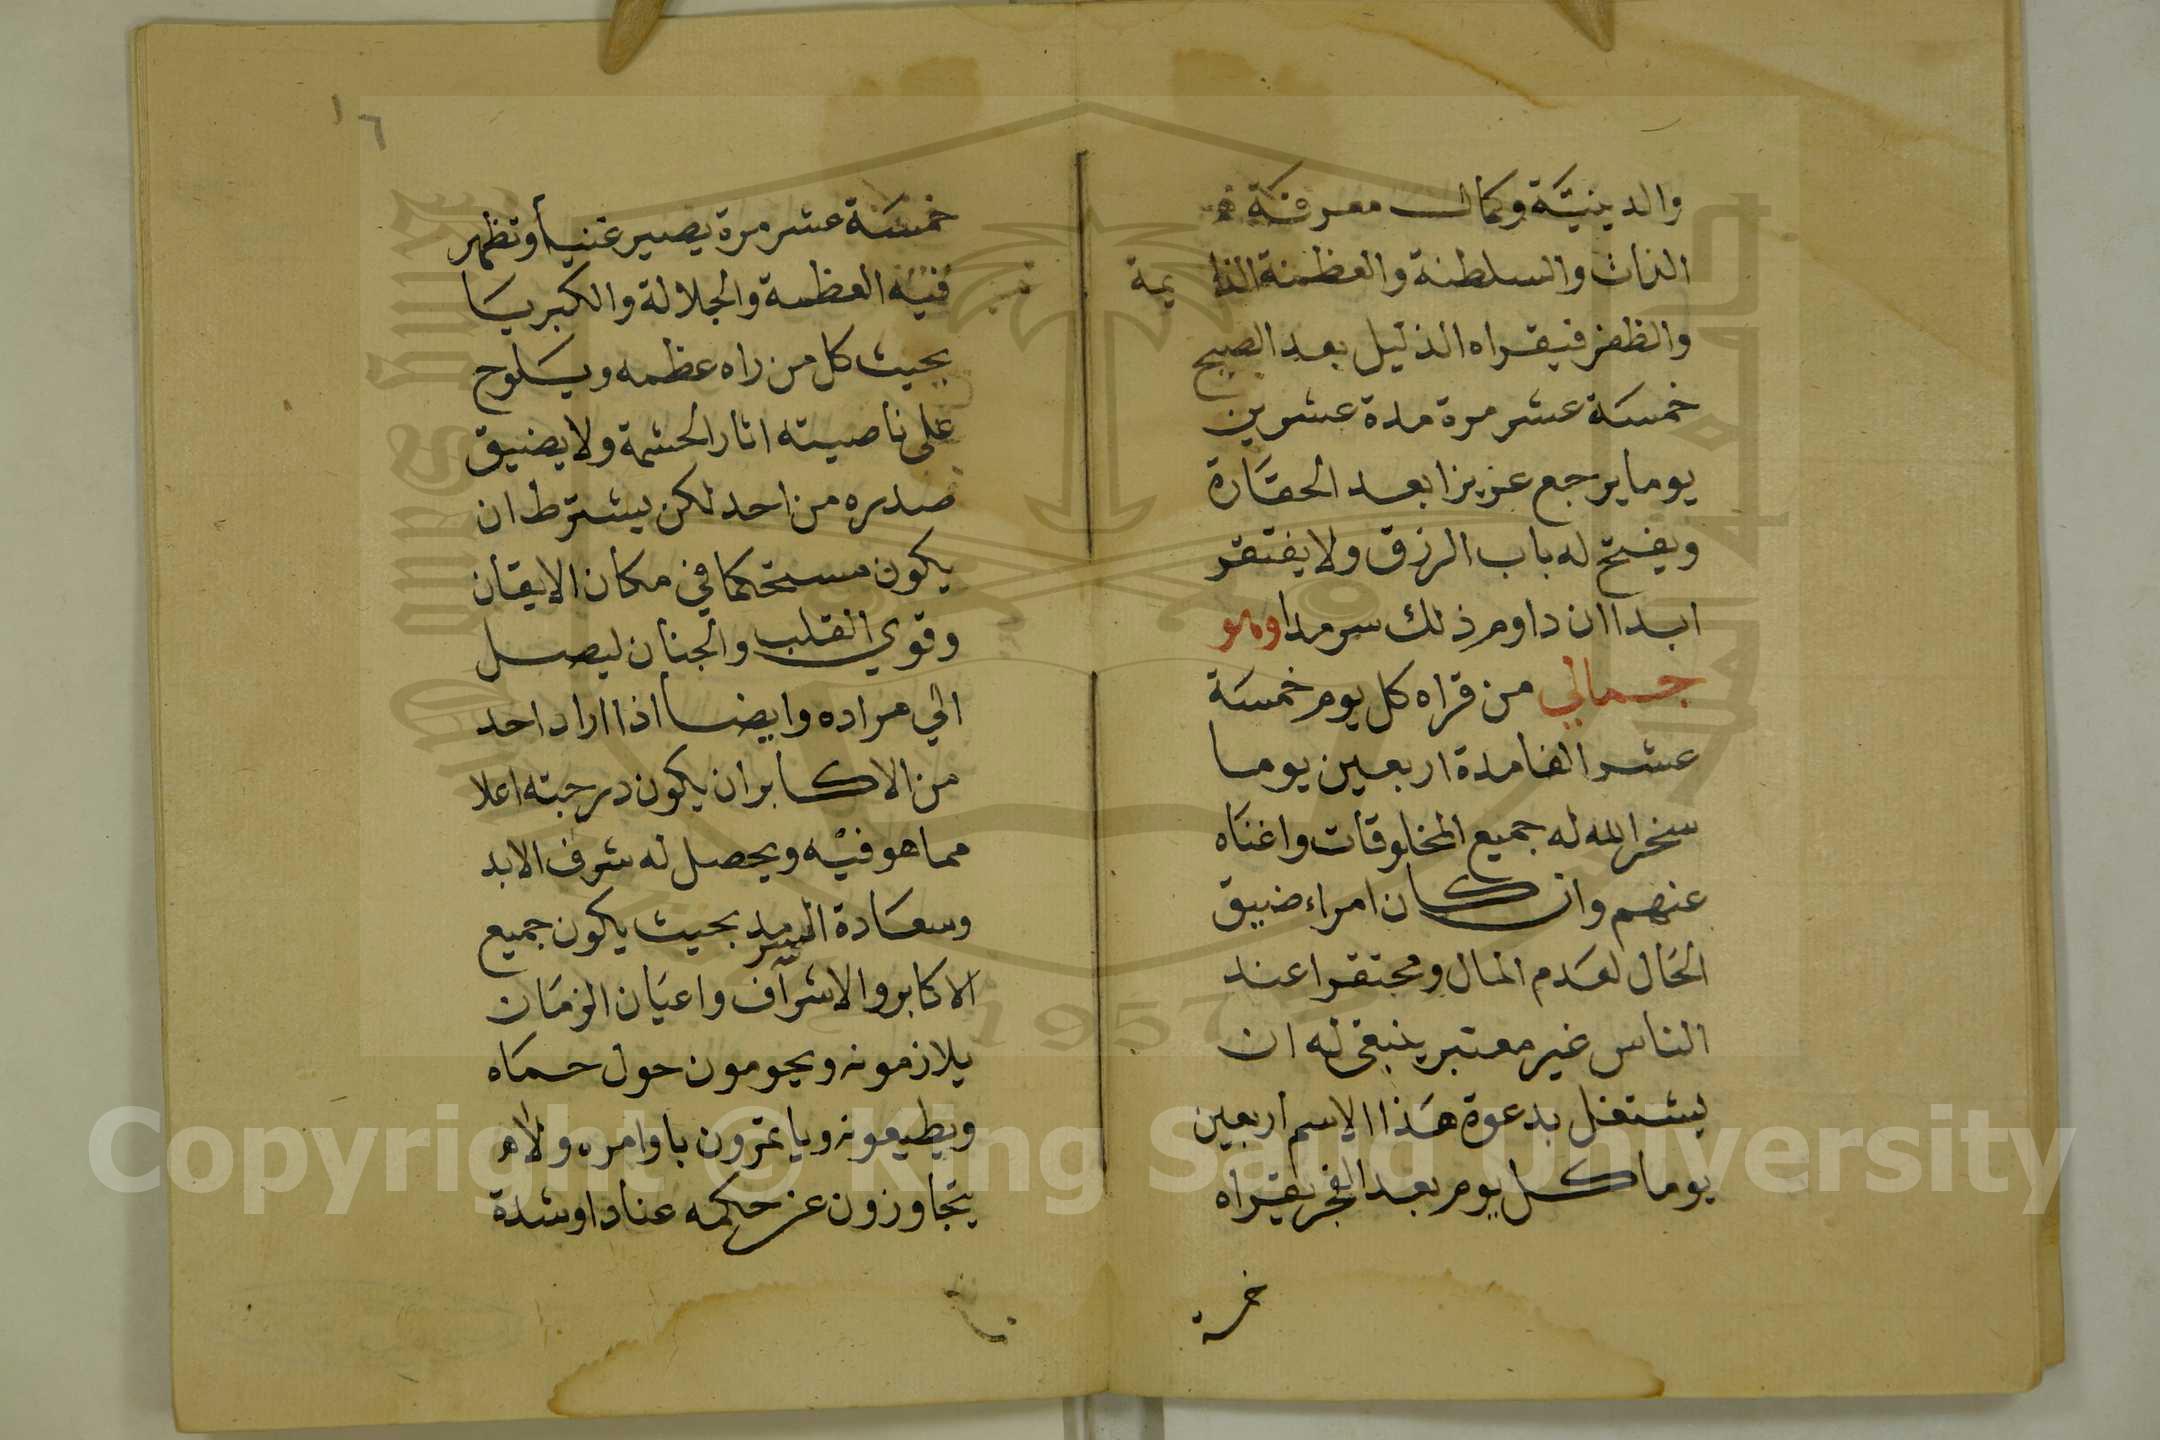 والدينيَّة وكمال معرفة
الذات والسلطنة والعظمة الدايمة
والظفر فيقراه الذليل بعد الصبح
خمسَة عشر مرة مدة عشرين
يوما يرجع عزيزا بعد الحقَارة
ويفتح له باب الرزق ولا يفتقر
ابدا ان داوم ذلك سرمدا وهو
جمالي من قراه كل يوم خمسَة
عشر الفا مدة اربعين يوما
سخر الله له جميع المخلوقات واغنَاه
عنهم وان كان امراء ضيق
الحَال لعَدم المال ومحتقرا عند
الناس غير معتبر ينبغي له ان
يشتغل بدعوة هَذا الاسم اربعين
يوما كل يوم بعد الفجر يقراه
خمسة
١٦
خمسَة عشر مرة يصير غنيا وتظهر
فيه العظمة والجلالة والكبريَا
بحيث كل من راه عظمه ويَلوح
على ناصيته اثار الحشمة ولا يضيق
صدره من احد لكن يشترط ان
يكون مستحكما في مكان الايقان
وقوي القلب والجنان ليصل
الي مراده وايضا اذا اراد احد
من الاكابر ان يكون درجته اعلا
مما هو فيه ويحصل له شرف الابد
وسعَادة السرمد بحيث يكون جميع
الاكابر والاشراف واعيَان الزمَان
يلازمونه ويحومون حول حمَاه
ويطيعونه وياتمرون باوامره ولا
يتجاوزون عن حكمه عنادا وشدة
King Saud University
1957
Copyright © King Saud University